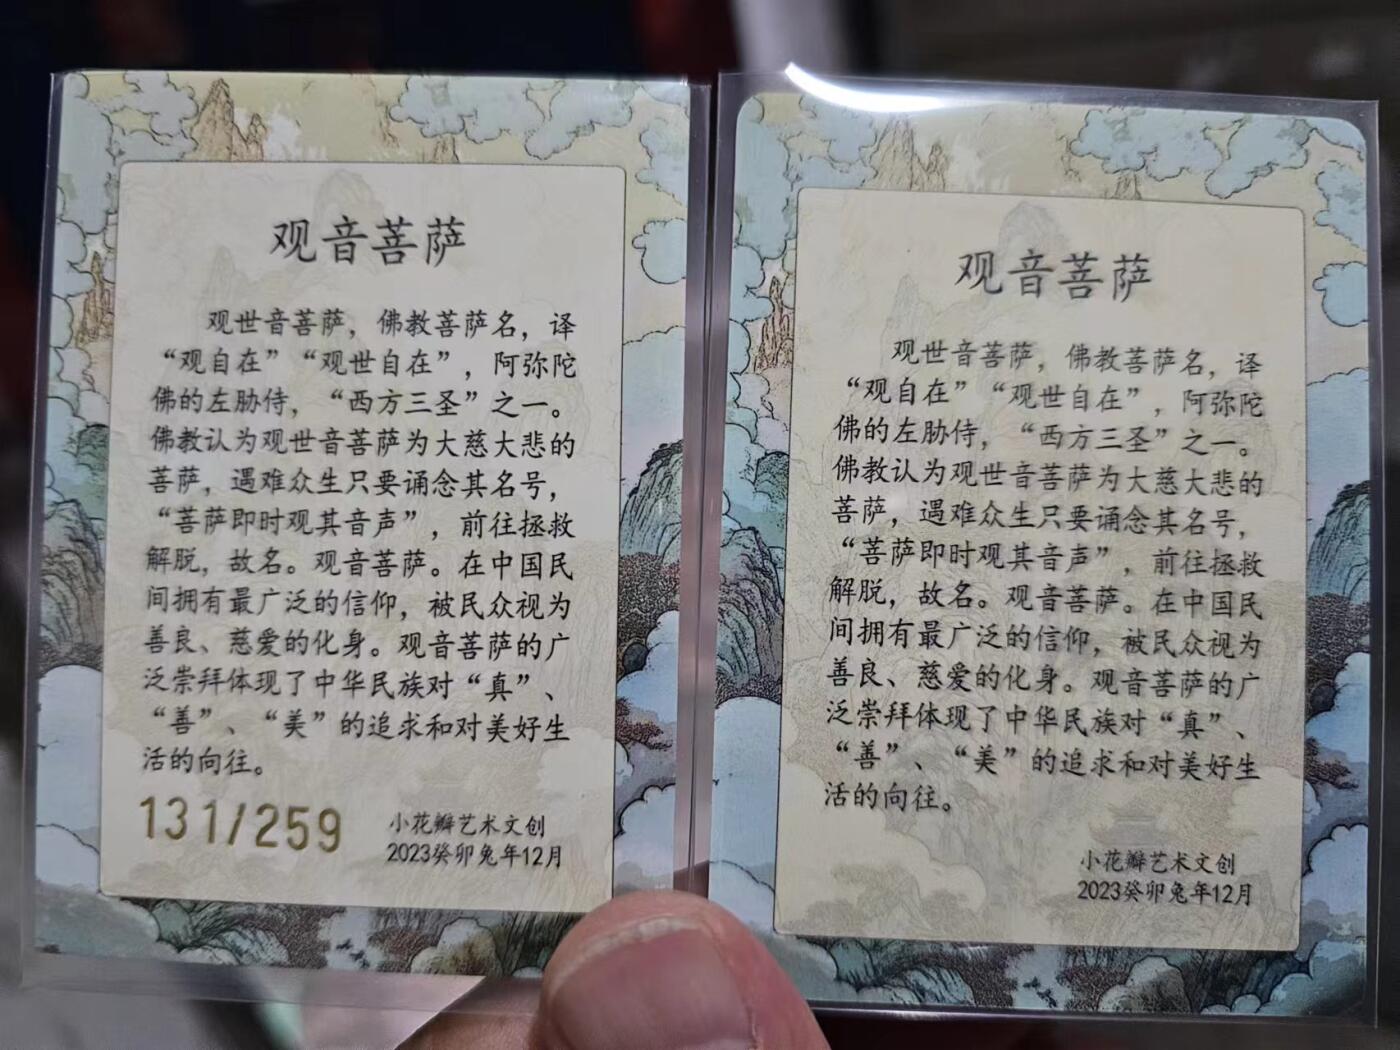 观音菩萨
观世音菩萨，佛教菩萨名，译
“观自在”“观世自在”，阿弥陀
佛的左胁侍，“西方三圣”之一。
佛教认为观世音菩萨为大慈大悲的
菩萨，遇难众生只要诵念其名号，
“菩萨即时观其音声”，前往拯救
解脱，故名。观音菩萨。在中国民
间拥有最广泛的信仰，被民众视为
善良、慈爱的化身。观音菩萨的广
泛崇拜体现了中华民族对“真”、
“善”、“美”的追求和对美好生
活的向往。
131/259
小花瓣艺术文创
2023癸卯兔年12月
观音菩萨
观世音菩萨，佛教菩萨名，译
“观自在”“观世自在”，阿弥陀
佛的左胁侍，“西方三圣”之一。
佛教认为观世音菩萨为大慈大悲的
菩萨，遇难众生只要诵念其名号，
“菩萨即时观其音声”，前往拯救
解脱，故名。观音菩萨。在中国民
间拥有最广泛的信仰，被民众视为
善良、慈爱的化身。观音菩萨的广
泛崇拜体现了中华民族对“真”、
“善”、“美”的追求和对美好生
活的向往。
小花瓣艺术文创
2023癸卯兔年12月